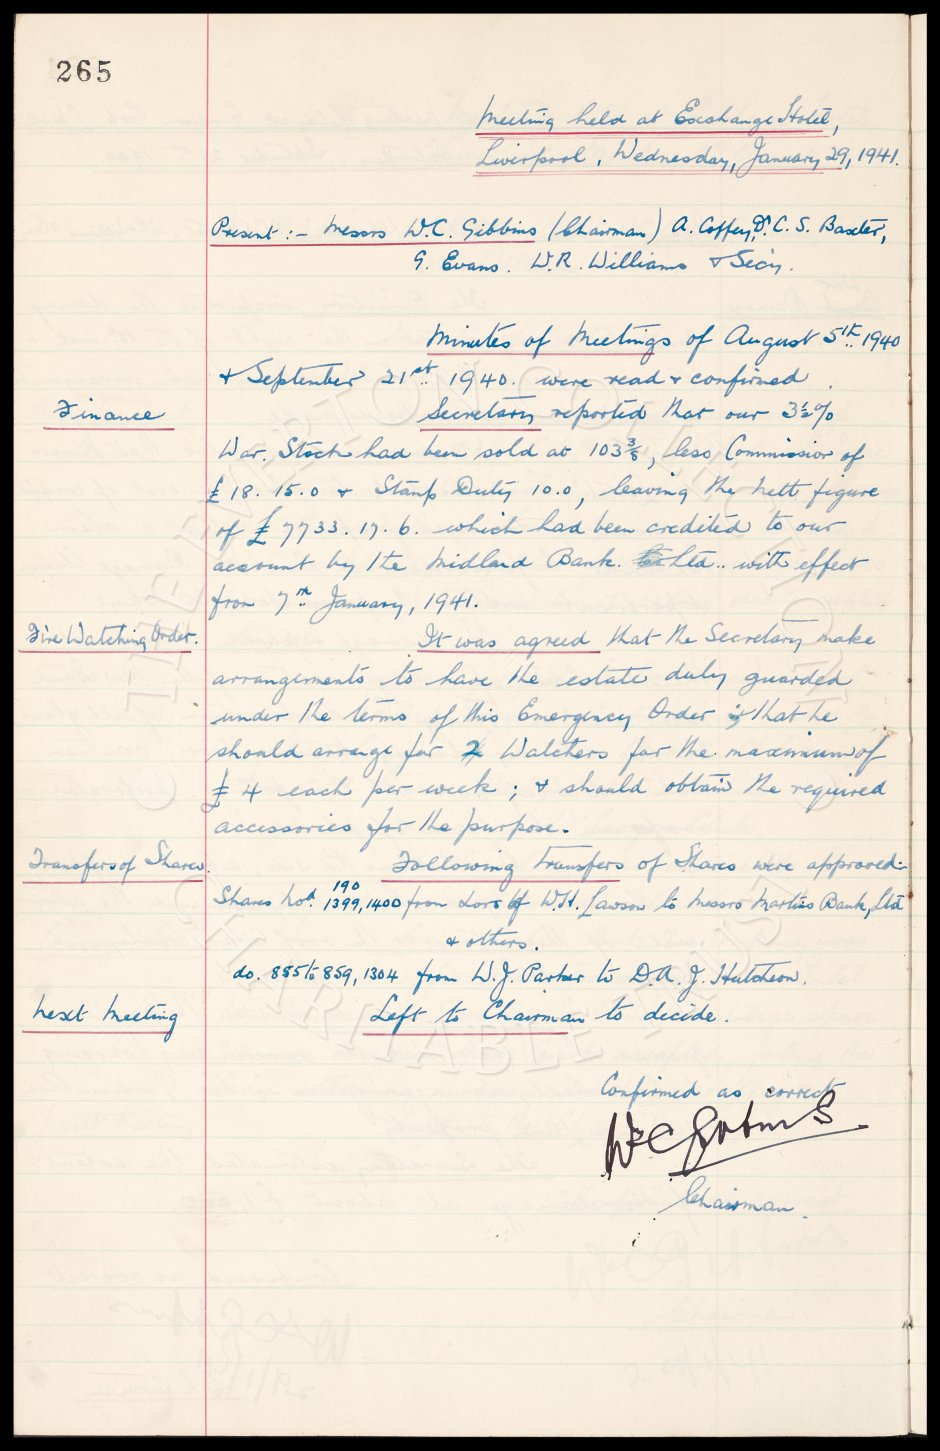 265
Meeting held at Exchange Hotel,
Liverpool, Wednesday, January 29, 1941.
Present :- Messrs W.C. Gibbins (Chairman) A. Coffey, Dr. C. S. Baxter,
G. Evans. W.R. Williams & Sec'y.
Minutes of Meetings of August 5th 1940
& September 21st 1940. were read & confirmed.
Finance
Secretary reported that our 3½%
War. Stock had been sold at 103⅜, less Commission of
£18. 15. 0 & Stamp Duty 10.0, leaving the nett figure
of £7733. 17. 6. which had been credited to our
account by the Midland Bank. Ltd.. with effect
from 7th January, 1941.
Fire Watching Order.
It was agreed that the Secretary make
arrangements to have the estate duly guarded
under the terms of this Emergency Order ; that he
should arrange for 2 Watchers for the maximum of
£4 each per week ; & should obtain the required
accessories for the purpose.
Transfers of Shares.
Following Transfers of Shares were approved:-
Shares Nos. 190 1399, 1400 from Exors of W.H. Lawson to Messrs Martins Bank, Ltd
& others.
do. 885 to 859, 1304 from W.J. Parker to D.A.J. Hutcheon.
Next Meeting
Left to Chairman to decide.
Confirmed as correct
W C Gibbins
Chairman.
© THE EVERTON COLLECTION
CHARITABLE TRUST